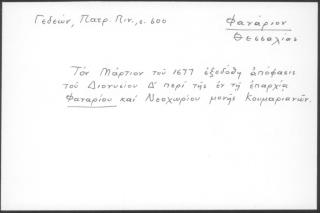 Γεδεών, Πατρ. Πιν., σ. 600
Φανάριον
Θεσσαλίας
Τὸν Μάρτιον τοῦ 1677 ἐξεδόθη ἀπόφασις
τοῦ Διονυσίου Δ' περὶ τῆς ἐν τῇ ἐπαρχίᾳ
Φαναρίου καὶ Νεοχωρίου μονῆς Κουμαριανῶν.